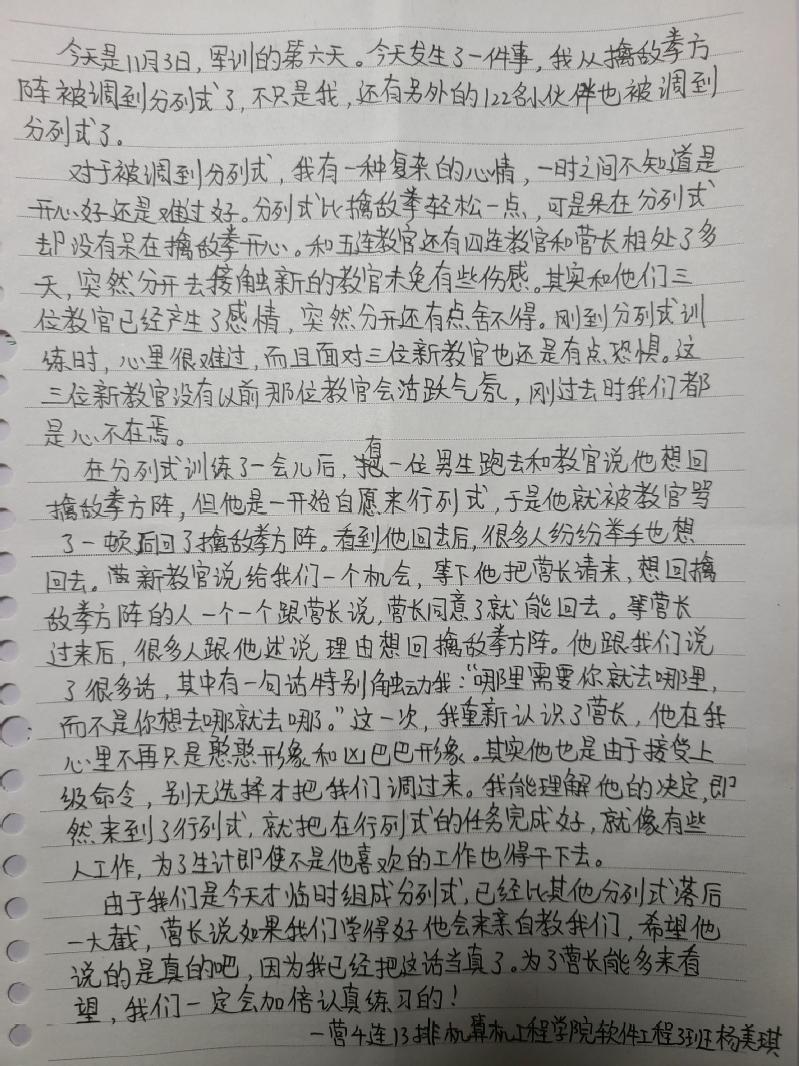 今天是11月3日，军训的第六天。今天发生了一件事，我从擒敌拳方
阵被调到分列式了，不只是我，还有另外的122名小伙伴也被调到
分列式了。
对于被调到分列式，我有一种复杂的心情，一时之间不知道是
开心好还是难过好。分列式比擒敌拳轻松一点，可是呆在分列式
却没有呆在擒敌拳开心。和五连教官还有四连教官和营长相处了多
天，突然分开去接触新的教官未免有些伤感。其实和他们三
位教官已经产生了感情，突然分开还有点舍不得。刚到分列式训
练时，心里很难过，而且面对三位新教官也还是有点恐惧。这
三位新教官没有以前那位教官会活跃气氛，刚过去时我们都
是心不在焉。
在分列式训练了一会儿后，有一位男生跑去和教官说他想回
擒敌拳方阵，但他是一开始自愿来行列式，于是他就被教官骂
了一顿后回了擒敌拳方阵。看到他回去后，很多人纷纷举手也想
回去。新教官说给我们一个机会，等下他把营长请来，想回擒
敌拳方阵的人一个一个跟营长说，营长同意了就能回去。等营长
过来后，很多人跟他述说理由想回擒敌拳方阵。他跟我们说
了很多话，其中有一句话特别触动我：“哪里需要你就去哪里，
而不是你想去哪就去哪。”这一次，我重新认识了营长，他在我
心里不再只是憨憨形象和凶巴巴形象。其实他也是由于接受上
级命令，别无选择才把我们调过来。我能理解他的决定，即
然来到了行列式，就把在行列式的任务完成好，就像有些
人工作，为了生计即使不是他喜欢的工作也得干下去。
由于我们是今天才临时组成分列式，已经比其他分列式落后
一大截，营长说如果我们学得好他会来亲自教我们，希望他
说的是真的吧，因为我已经把这话当真了。为了营长能多来看
望，我们一定会加倍认真练习的！
一营4连13排机算机工程学院软件工程3班杨美琪